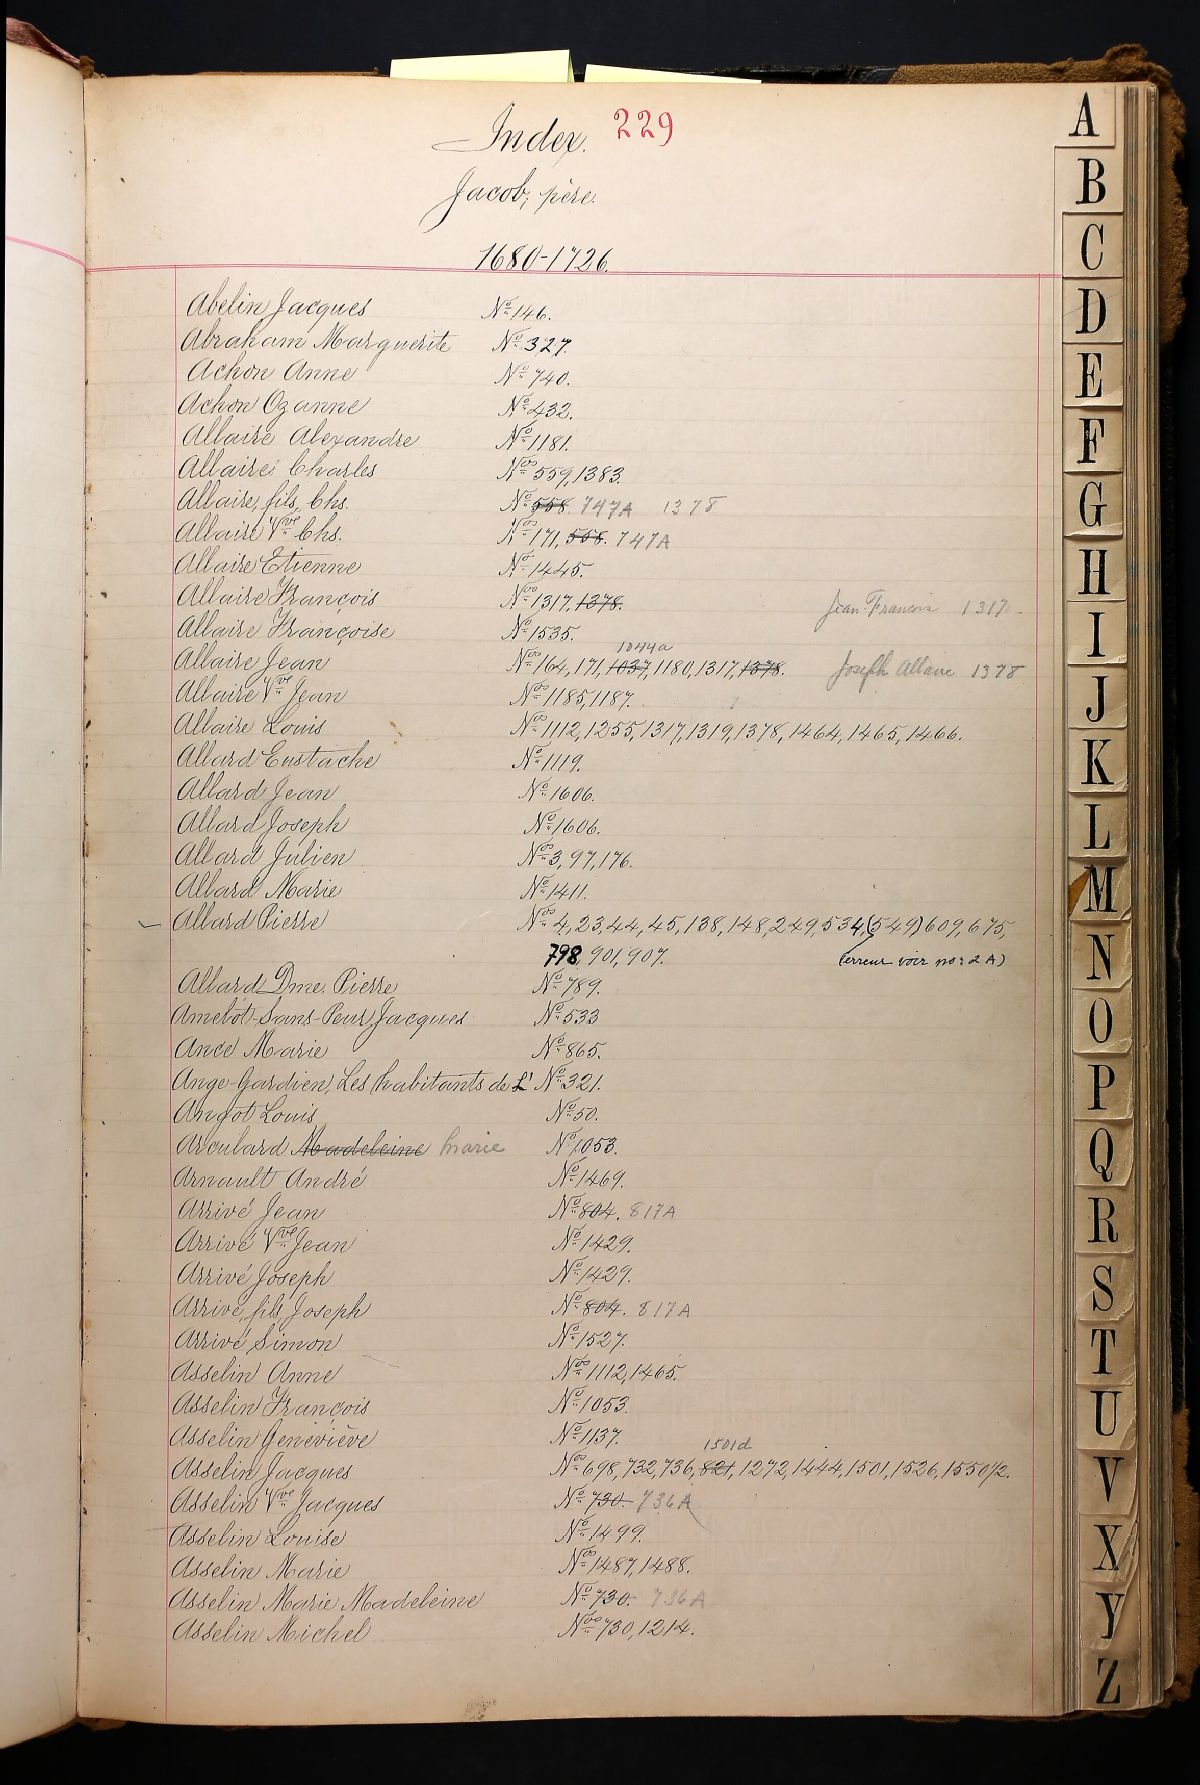 Index. 229
Jacob, père.
1680-1726.
Abelin Jacques Nº 146.
Abraham Marguerite Nº 327.
Achon Anne Nº 740.
Achon Ozanne Nº 432.
Allaire Alexandre Nº 1181.
Allaire Charles Nos 559, 1383.
Allaire, fils, Chs. Nº 558. 747A 1378
Allaire Vve Chs. Nos 171, 558. 747A
Allaire Etienne Nº 1445.
Allaire François Nos 1317, 1378. Jean-Francois 1317.
Allaire Françoise Nº 1535.
1044a
Allaire Jean Nos 164, 171, 1037, 1180, 1317, 1378. Joseph Allaire 1378
Allaire Vve Jean Nos 1185, 1187.
Allaire Louis Nos 1112, 1255, 1317, 1319, 1378, 1464, 1465, 1466.
Allard Eustache Nº 1119.
Allard Jean Nº 1606.
Allard Joseph Nº 1606.
Allard Julien Nos 3, 97, 176.
Allard Marie Nº 1411.
Allard Pierre Nos 4, 23, 44, 45, 138, 148, 249, 534, (549) 609, 675,
798, 901, 907. (erreur voir no: 2 A)
Allard Dme. Pierre Nº 789.
Amelot-Sans-Peur Jacques Nº 533
Ance Marie Nº 865.
Ange-Gardien, Les habitants de L' Nº 321.
Angot Louis Nº 50.
Arculard Madeleine Marie Nº 1053.
Arnault André Nº 1469.
Arrivé Jean Nº 804. 817A
Arrivé Vve Jean Nº 1429.
Arrivé Joseph Nº 1429.
Arrivé, fils, Joseph Nº 804. 817A
Arrivé Simon Nº 1527.
Asselin Anne Nos 1112, 1465.
Asselin François Nº 1053.
Asselin Geneviève Nº 1137.
1501d
Asselin Jacques Nos 698, 732, 736, 821, 1272, 1444, 1501, 1526, 1550 1/2.
Asselin Vve Jacques Nº 730. 736A
Asselin Louise Nº 1499.
Asselin Marie Nos 1487, 1488.
Asselin Marie Madeleine Nº 730. 736A
Asselin Michel Nos 730, 1214.
A
B
C
D
E
F
G
H
I
J
K
L
M
N
O
P
Q
R
S
T
U
V
X
Y
Z